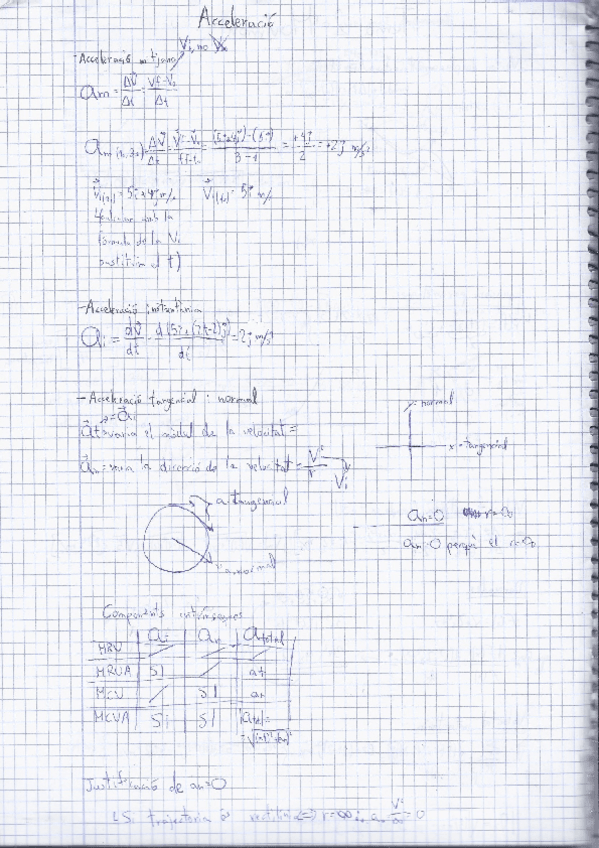 Acceleració
-Acceleració mitjana Vi, no Vm
am = ΔV/Δt = Vf-Vi/Δt
am = ΔV/Δt = (5i+4j)-(5i)/3-1 = +4j/2 = +2j m/s²
5i+4j m/s 5i m/s
amb la
formula de la Vi
t)
-Acceleració instantània
ai = dV/dt = d(5i+(2t-2)j)/dt = 2j m/s²
-Acceleració tangencial i normal
= ai
at = varia el mòdul de la velocitat =
an = varia la direcció de la velocitat = V²/r
Vi
y = normal
x = tangencial
a tangencial
a normal
an=0 r=∞
an=0 perquè el r=∞
Components intrínseques
at an atotal
MRU
MRUA SI at
MCU SI an
MCUA Si SI
Justificació de an=0
trajectòria és rectilínia <=> r=∞ =0